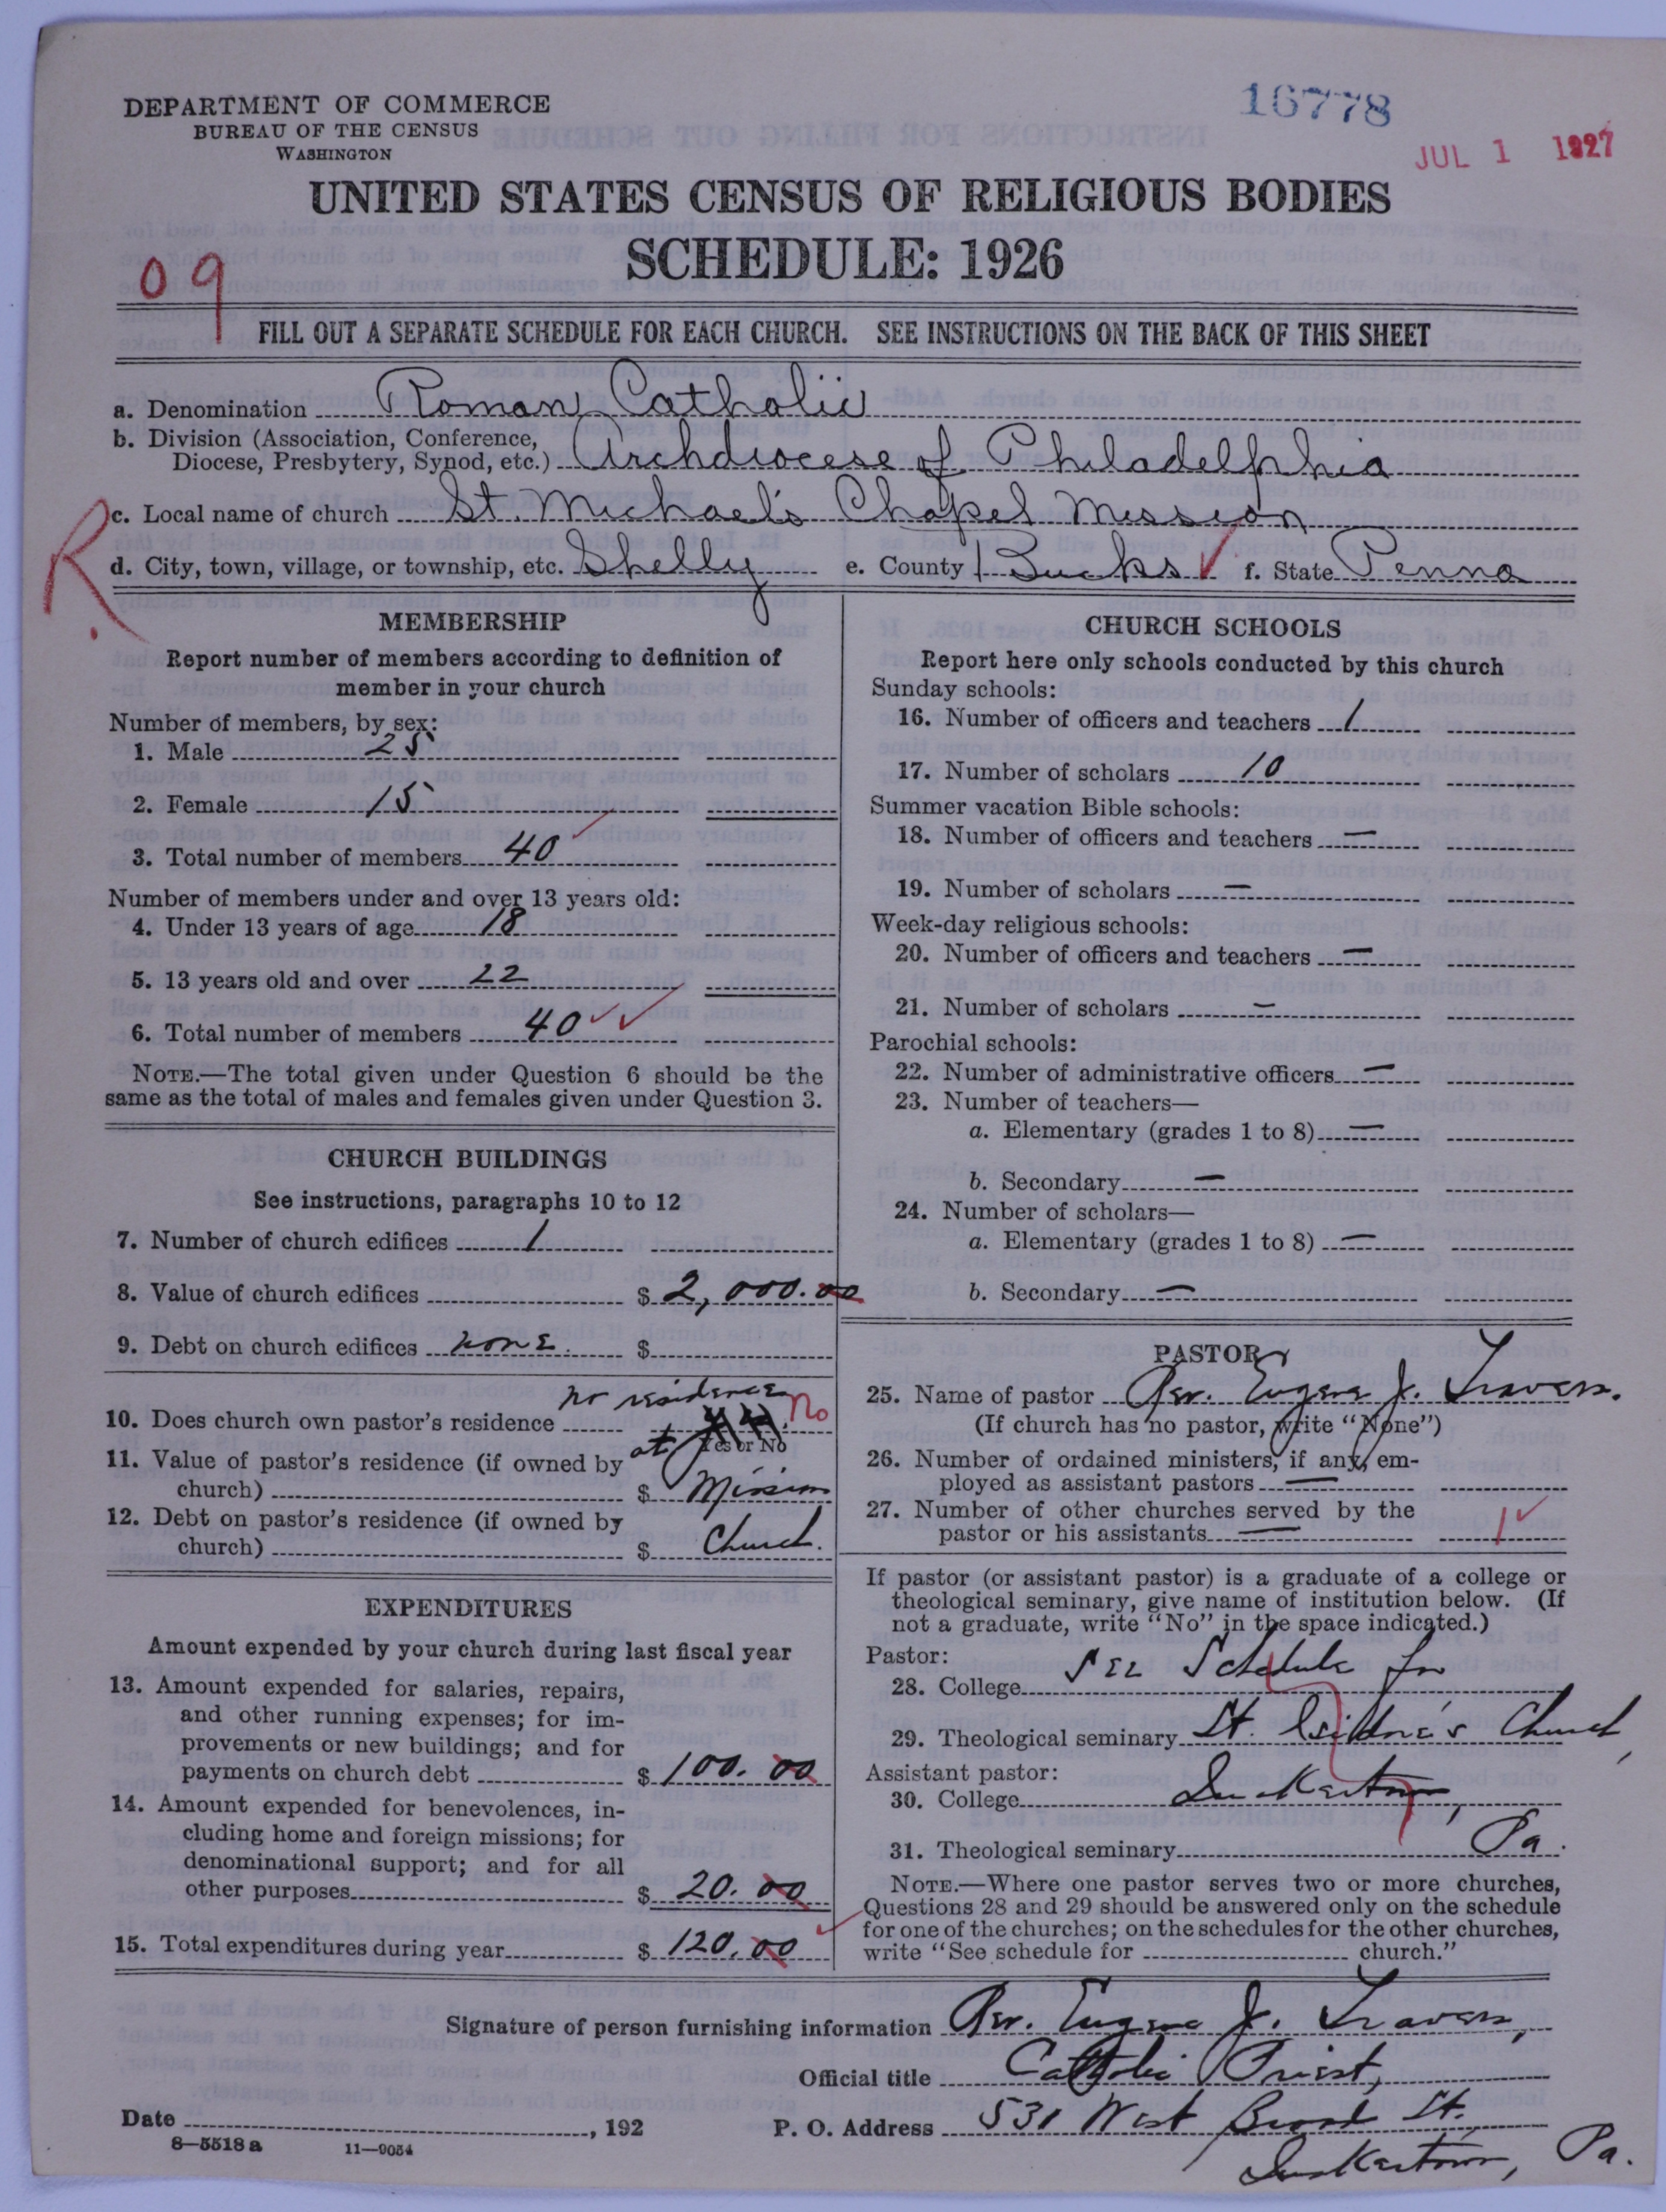 16778
JUL 1 1927
DEPARTMENT OF COMMERCE
BUREAU OF THE CENSUS
WASHINGTON
UNITED STATES CENSUS OF RELIGIOUS BODIES
SCHEDULE: 1926
09
FILL OUT A SEPARATE SCHEDULE FOR EACH CHURCH. SEE INSTRUCTIONS ON THE BACK OF THIS SHEET
a. Denomination Roman Catholic
b. Division (Association, Conference,
Diocese, Presbytery, Synod, etc.) Archdiocese of Philadelphia
R.
c. Local name of church St. Michael's Chapel Mission
d. City, town, village, or township, etc. Shelly e. County Bucks ✓ f. State Penna
MEMBERSHIP
Report number of members according to definition of
member in your church
Number of members, by sex:
1. Male 25
2. Female 15
3. Total number of members 40 ✓
Number of members under and over 13 years old:
4. Under 13 years of age 18
5. 13 years old and over 22
6. Total number of members 40 ✓ ✓
NOTE.—The total given under Question 6 should be the
same as the total of males and females given under Question 3.
CHURCH BUILDINGS
See instructions, paragraphs 10 to 12
7. Number of church edifices 1
8. Value of church edifices $ 2,000.00
9. Debt on church edifices none. $
no residence
10. Does church own pastor's residence No
Yes or No
at
11. Value of pastor's residence (if owned by
church) $ Mission
12. Debt on pastor's residence (if owned by
church) $ Church.
EXPENDITURES
Amount expended by your church during last fiscal year
13. Amount expended for salaries, repairs,
and other running expenses; for im-
provements or new buildings; and for
payments on church debt $ 100.00
14. Amount expended for benevolences, in-
cluding home and foreign missions; for
denominational support; and for all
other purposes $ 20.00
15. Total expenditures during year $ 120.00 ✓
CHURCH SCHOOLS
Report here only schools conducted by this church
Sunday schools:
16. Number of officers and teachers 1
17. Number of scholars 10
Summer vacation Bible schools:
18. Number of officers and teachers —
19. Number of scholars —
Week-day religious schools:
20. Number of officers and teachers —
21. Number of scholars —
Parochial schools:
22. Number of administrative officers —
23. Number of teachers—
a. Elementary (grades 1 to 8) —
b. Secondary —
24. Number of scholars—
a. Elementary (grades 1 to 8) —
b. Secondary —
PASTOR
25. Name of pastor Rev. Eugene J. Travers.
(If church has no pastor, write "None")
26. Number of ordained ministers, if any, em-
ployed as assistant pastors —
27. Number of other churches served by the
pastor or his assistants — 1 ✓
If pastor (or assistant pastor) is a graduate of a college or
theological seminary, give name of institution below. (If
not a graduate, write "No" in the space indicated.)
Pastor:
28. College See Schedule for
29. Theological seminary St. Isidore's Church,
Assistant pastor:
30. College Quakertown,
31. Theological seminary Pa.
NOTE.—Where one pastor serves two or more churches,
Questions 28 and 29 should be answered only on the schedule
for one of the churches; on the schedules for the other churches,
write "See schedule for church."
Signature of person furnishing information Rev. Eugene J. Travers,
Official title Catholic Priest,
Date , 192 P. O. Address 531 West Broad St.
Quakertown, Pa.
8—5518a 11—9054